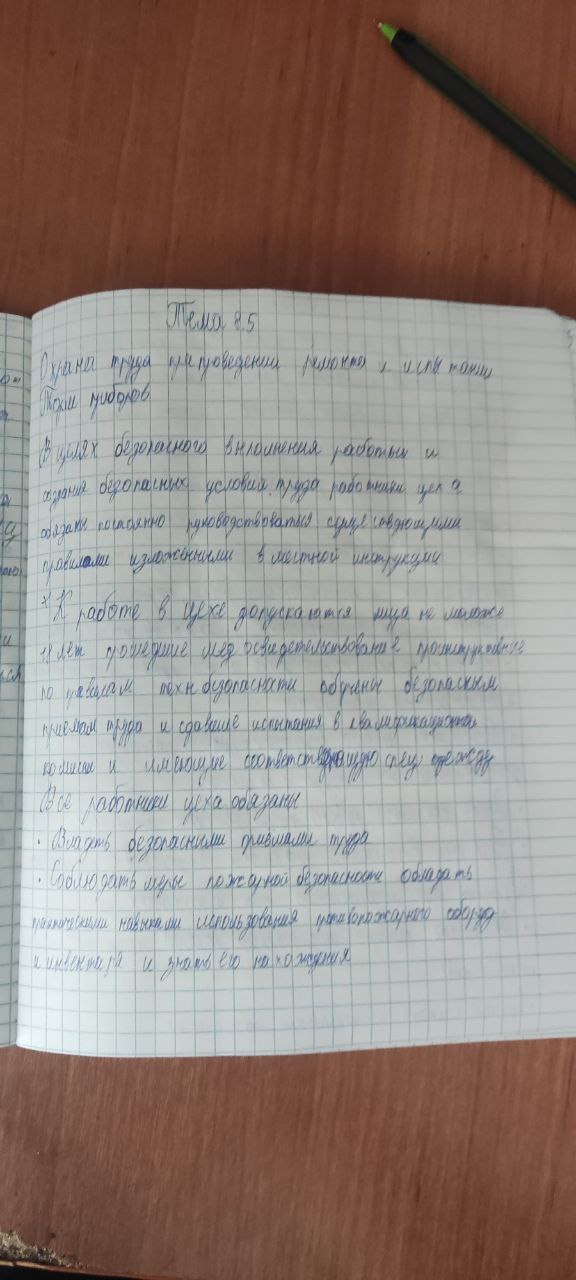 Тема 8.5
Охрана труда при проведении ремонта и испытании
Торм приборов
В целях безопасного выполнения работы и
создания безопасных условий труда работники цеха
обязаны постоянно руководствоваться существующими
правилами изложенными в местной инструкции
* К работе в цехе допускаются лица не моложе
18 лет прошедшие мед освидетельствование
по правилам техн безопасности обучены безопасным
приёмам труда и сдавшие испытания в
комисии и имеющие соответствующую спец одежду
Все работники цеха обязаны
· Владеть безопасными приёмами труда
· Соблюдать меры пожарной безопасности обладать
практическими навыками использования противопожарного оборуд
и инвентаря и знать его нахождения